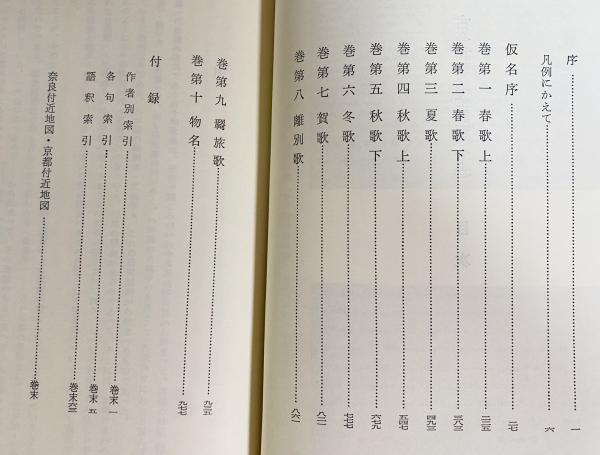 序 一
凡例にかえて 六
仮名序 二七
巻第一 春歌上 二三五
巻第二 春歌下 三八三
巻第三 夏歌 四九三
巻第四 秋歌上 五四七
巻第五 秋歌下 六七九
巻第六 冬歌 七七七
巻第七 賀歌 八二一
巻第八 離別歌 八六一
巻第九 羇旅歌 九三五
巻第十 物名 九七七
付録
作者別索引 巻末 一
各句索引 巻末 五
語釈索引 巻末六三
奈良付近地図・京都付近地図 巻末